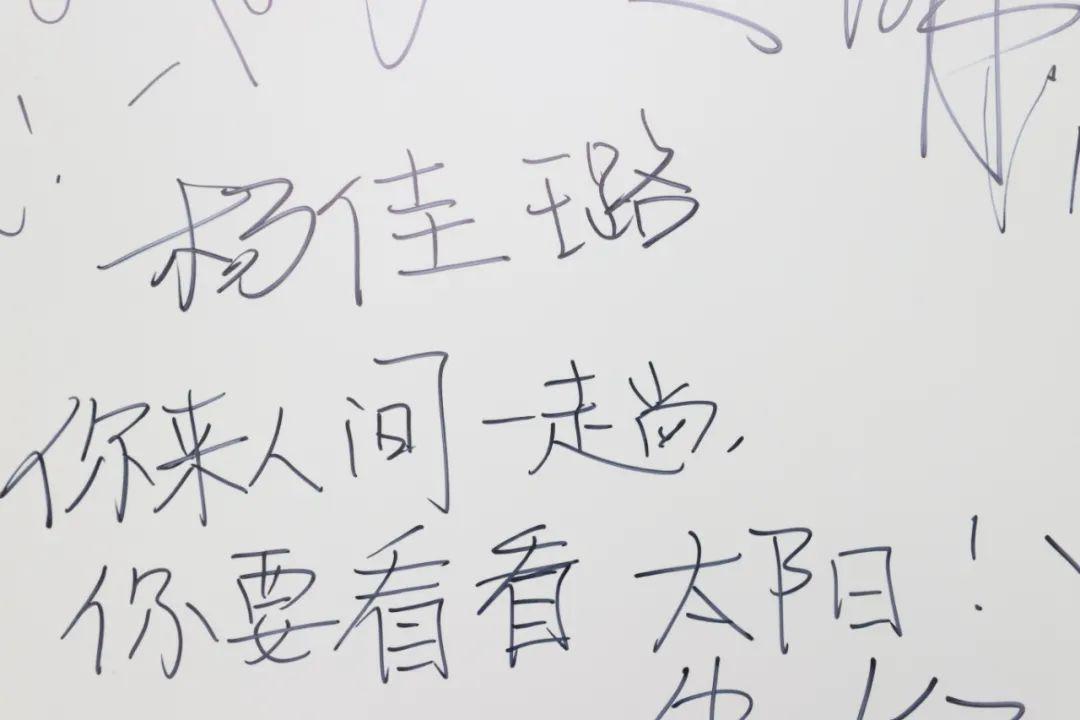 杨佳璐
你来人间一趟,
你要看看太阳!